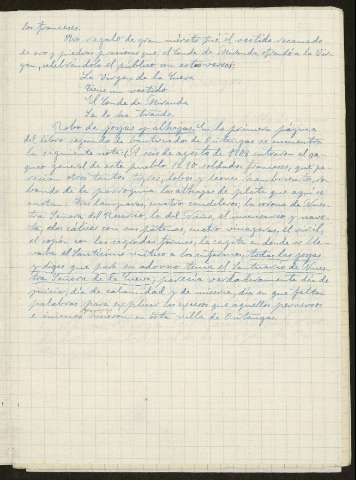 los franceses.
Otro regalo de gran mérito fué el vestido recamado
de oro y piedras preciosas que el Conde de Miranda ofrendó a la Vir-
gen, celebrándolo el público con estos versos:
La Virgen de la Cueva
tiene un vestido.
El Conde de Miranda
se lo ha traido.
Robo de joyas y alhajas. En la primera página
del libro segundo de bautizados de Ontangas se encuentra
la siguiente nota: "A seis de agosto de 1808 entraron el sa-
queo general de este pueblo 1850 soldados franceses, que pa-
recían otros tantos tigres, lobos y leones hambrientos, ro-
bando de la parroquia las alhajas de plata que aquí se
anotan: tres lámparas, cuatro candeleros, la corona de Nues-
tra Señora del Rosario, la del Niño, el incensario y nave-
ta, dos cálices con sus patenas, cuatro vinageras, el viril,
el copón con las sagradas formas, la cajita en donde se lle-
vaba el Santísimo viático a los enfermos, todas las joyas
y dijes que para su adorno tenía el Santuario de Nues-
tra Señora de la Cueva; parecía verdaderamente día de
juicio, día de calamidad y de miseria, día en que faltan
palabras para explicar los excesos que aquellos perversos
e inicuos hicieron en esta villa de Ontangas.